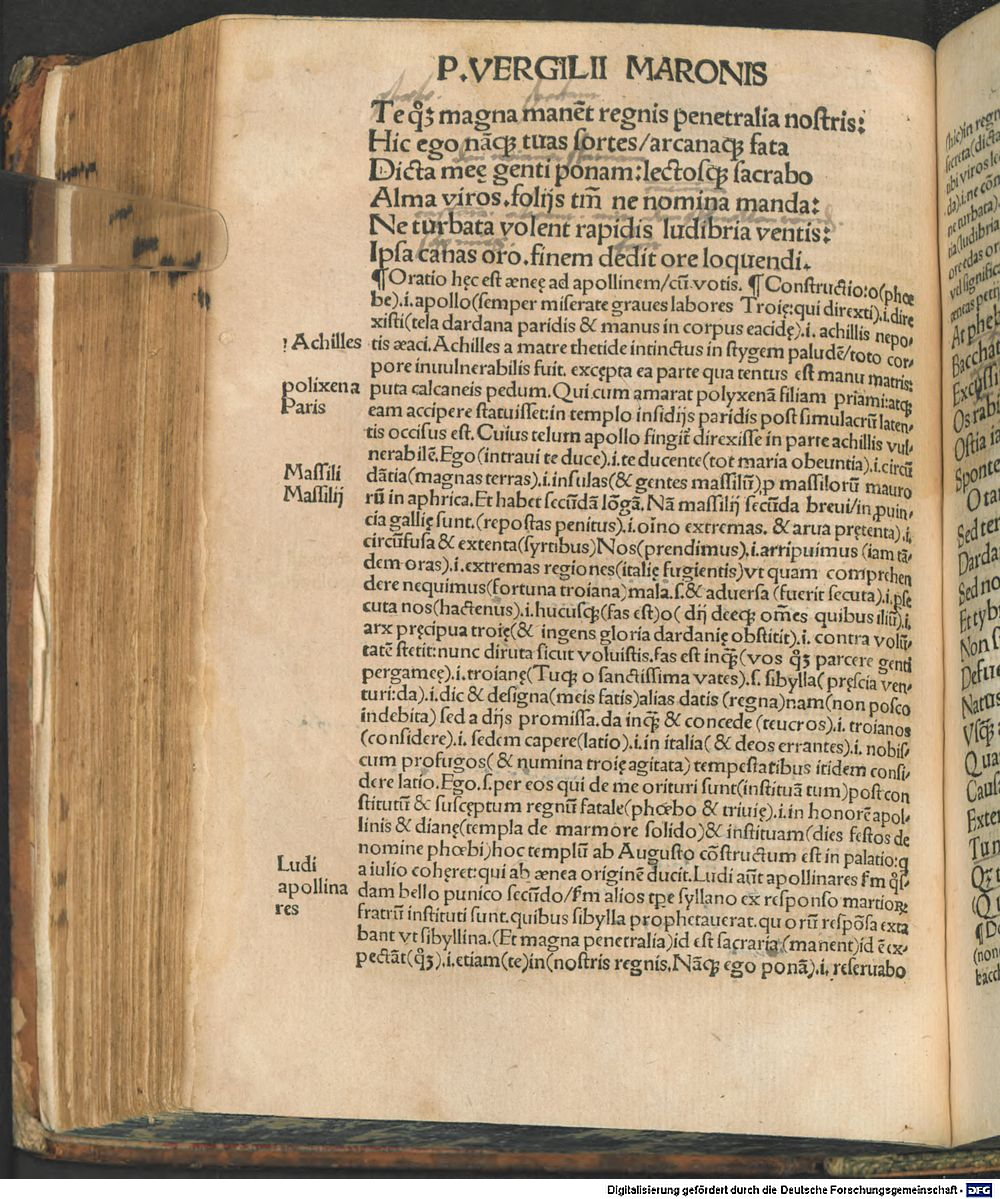 P.VERGILII MARONIS
Te qȝ magna manēt regnis penetralia noſtris:
Hic ego nāqȝ tuas ſortes/arcanaqȝ fata
Dicta meę genti ponam:lectoſqȝ ſacrabo
Alma viros.folijs tm̄ ne nomina manda:
Ne turbata volent rapidis ludibria ventis:
Ipſa canas oro.finem dedit ore loquendi.
¶Oratio hęc eſt æneę ad apollinem/cū votis. ¶Conſtructio:o(phœ
be).i.apollo(ſemper miſerate graues labores Troię:qui direxti).i.dire
xiſti(tela dardana paridis & manus in corpus eacidę).i. achillis nepo⸗
! Achilles
tis æaci.Achilles a matre thetide intinctus in ſtygem paludē/toto cor⸗
pore inuulnerabilis fuit. excępta ea parte qua tentus eſt manu matris:
polixena
puta calcaneis pedum.Qui cum amarat polyxenā filiam priami:atqȝ
Paris
eam accipere ſtatuiſſet:in templo inſidijs paridis poſt ſimulacrū laten⸗
tis occiſus eſt.Cuius telum apollo fingit̄ direxiſſe in parte achillis vul⸗
nerabilē.Ego(intraui te duce).i.te ducente(tot maria obeuntia).i.circū
Maſſili
dātia(magnas terras).i.inſulas(& gentes maſſilū),p maſſilorū mauro
Maſſilij
rū in aphrica.Et habet ſecūdā lōgā. Nā maſſilij ſecūda breui/in,puin⸗
cia gallię ſunt.(repoſtas penitus).i.oīno extremas. & arua prętenta).i.
circūfuſa & extenta(ſyrtibus)Nos(prendimus).i.arripuimus (iam tā⸗
dem oras).i.extremas regiones(italię fugientis)vt quam comprehen
dere nequimus(fortuna troiana)mala.ſ.& aduerſa (fuerit ſecuta).i.pſe
cuta nos(hactenus).i.hucuſqȝ(fas eſt)o( dij deeqȝ om̄es quibus iliū).i.
arx pręcipua troię(& ingens gloria dardanię obſtitit).i. contra volū⸗
tatē ſtetit:nunc diruta ſicut voluiſtis.fas eſt inqȝ(vos qȝ parcere genti
pergameę).i.troianę(Tuqȝ o ſanctiſſima vates).ſ. ſibylla( pręſcia ven⸗
turi:da).i.dic & deſigna(meis fatis)alias datis (regna)nam(non poſco
indebita) ſed a dijs promiſſa.da inqȝ & concede (teucros).i. troianos
(conſidere).i. ſedem capere(latio).i.in italia( & deos errantes).i. nobiſ⸗
cum profugos( & numina troię agitata) tempeſtatibus itidem conſi⸗
dere latio. Ego.ſ.per eos qui de me orituri ſunt(inſtituā tum)poſt con
ſtitutū & ſuſceptum regnū fatale(phœbo & triuię).i.in honorē apol⸗
linis & dianę(templa de marmore ſolido)& inſtituam(dies feſtos de
nomine phœbi)hoc templū ab Auguſto cōſtructum eſt in palatio:q
Ludi
a iulio coheret:qui ab ænea originē ducit.Ludi aūt apollinares ſm qſ⸗
apollina
dam bello punico ſecūdo/ſm alios tpe ſyllano ex reſponſo martioꝝ
res
fratrū inſtituti ſunt.quibus ſibylla prophetauerat.quorū reſpōſa exta
bant vt ſibyllina.(Et magna penetralia)id eſt ſacraria (manent)id ē ex⸗
pectāt(qȝ).i.etiam(te)in(noſtris regnis.Nāqȝ ego ponā).i. reſeruabo
Digitalisierung gefördert durch die Deutsche Forschungsgemeinschaft - DFG